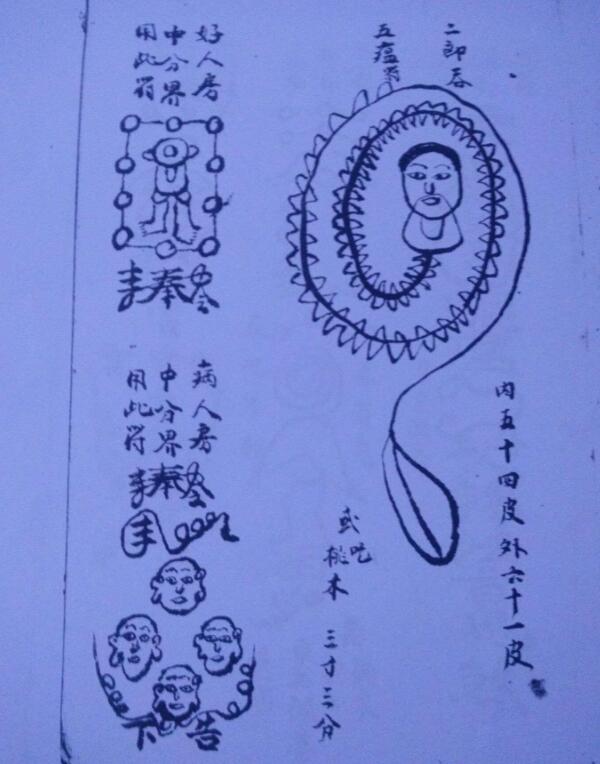 二郎吞
五瘟符
内五十四皮外六十一皮
桃木 三寸三分
好人房
中分界
用此符
奉
病人房
中分界
用此符
奉
下告